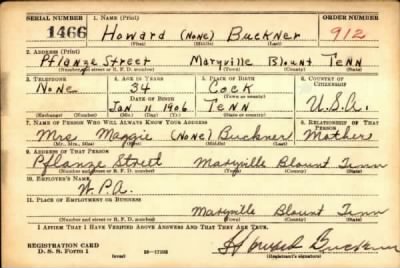 SERIAL NUMBER 1. NAME (Print) ORDER NUMBER
1466 Howard (None) Buckner 912
(First) (Middle) (Last)
2. ADDRESS (Print)
Pflanze Street Maryville Blount Tenn
(Number and street or R. F. D. number) (Town) (County) (State)
3. TELEPHONE 4. AGE IN YEARS 5. PLACE OF BIRTH 6. COUNTRY OF CITIZENSHIP
None 34 Cock
DATE OF BIRTH (Town or county)
Jan 11 1906 Tenn U.S.A.
(Exchange) (Number) (Mo.) (Day) (Yr.) (State or country)
7. NAME OF PERSON WHO WILL ALWAYS KNOW YOUR ADDRESS 8. RELATIONSHIP OF THAT PERSON
Mrs Maggie (None) Buckner Mother
(Mr., Mrs., Miss) (First) (Middle) (Last)
9. ADDRESS OF THAT PERSON
Pflanze Street Maryville Blount Tenn
(Number and street or R. F. D. number) (Town) (County) (State)
10. EMPLOYER'S NAME
W.P.A.
11. PLACE OF EMPLOYMENT OR BUSINESS
Maryville Blount Tenn
(Number and street or R. F. D. number) (Town) (County) (State)
I AFFIRM THAT I HAVE VERIFIED ABOVE ANSWERS AND THAT THEY ARE TRUE.
REGISTRATION CARD Howard Buckner
D. S. S. FORM 1 (over) (Registrant's signature)